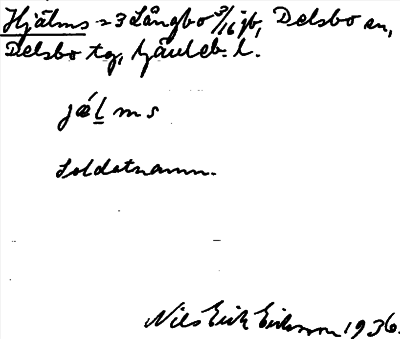 Hjälms = 3 Långbo 3/16 jb, Delsbo sn,
Delsbo tg, Gävleb. l.
jǽl̲ms
Soldatnamn.
Nils Erik Eriksson 1936.